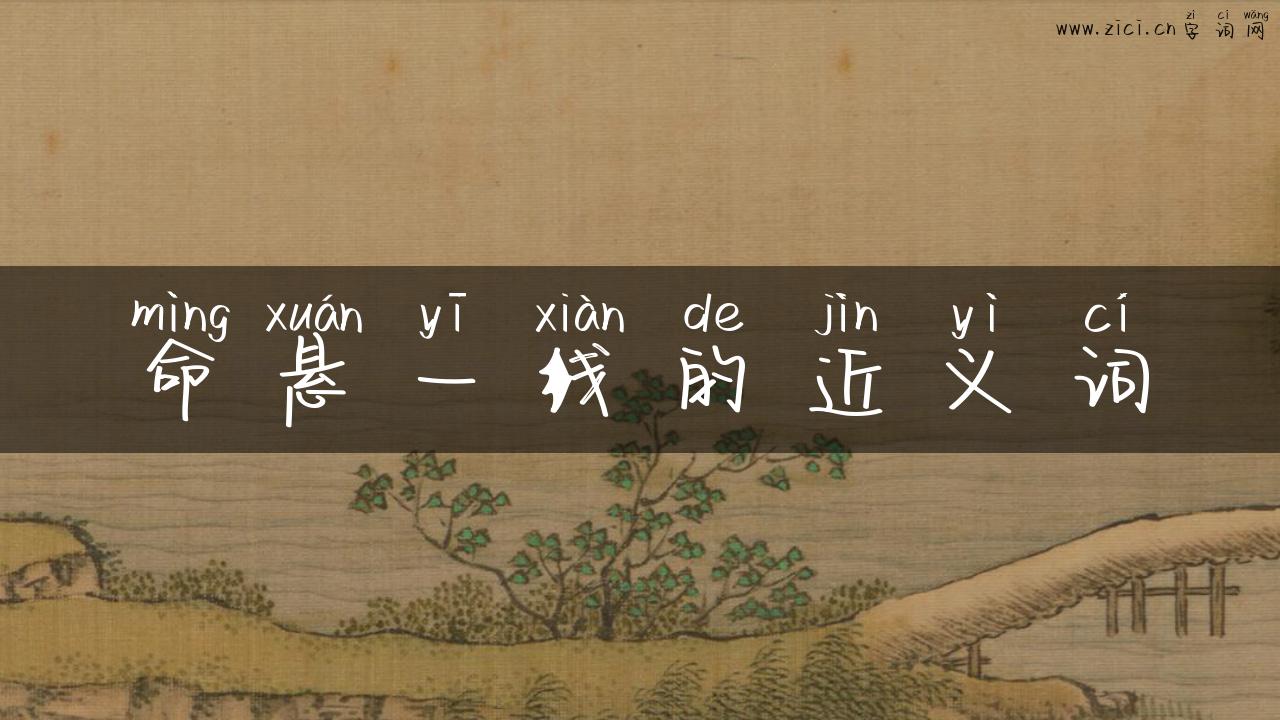 zì cí wǎng
www.zici.cn 字词网
mìng xuán yī xiàn de jìn yì cí
命悬一线的近义词